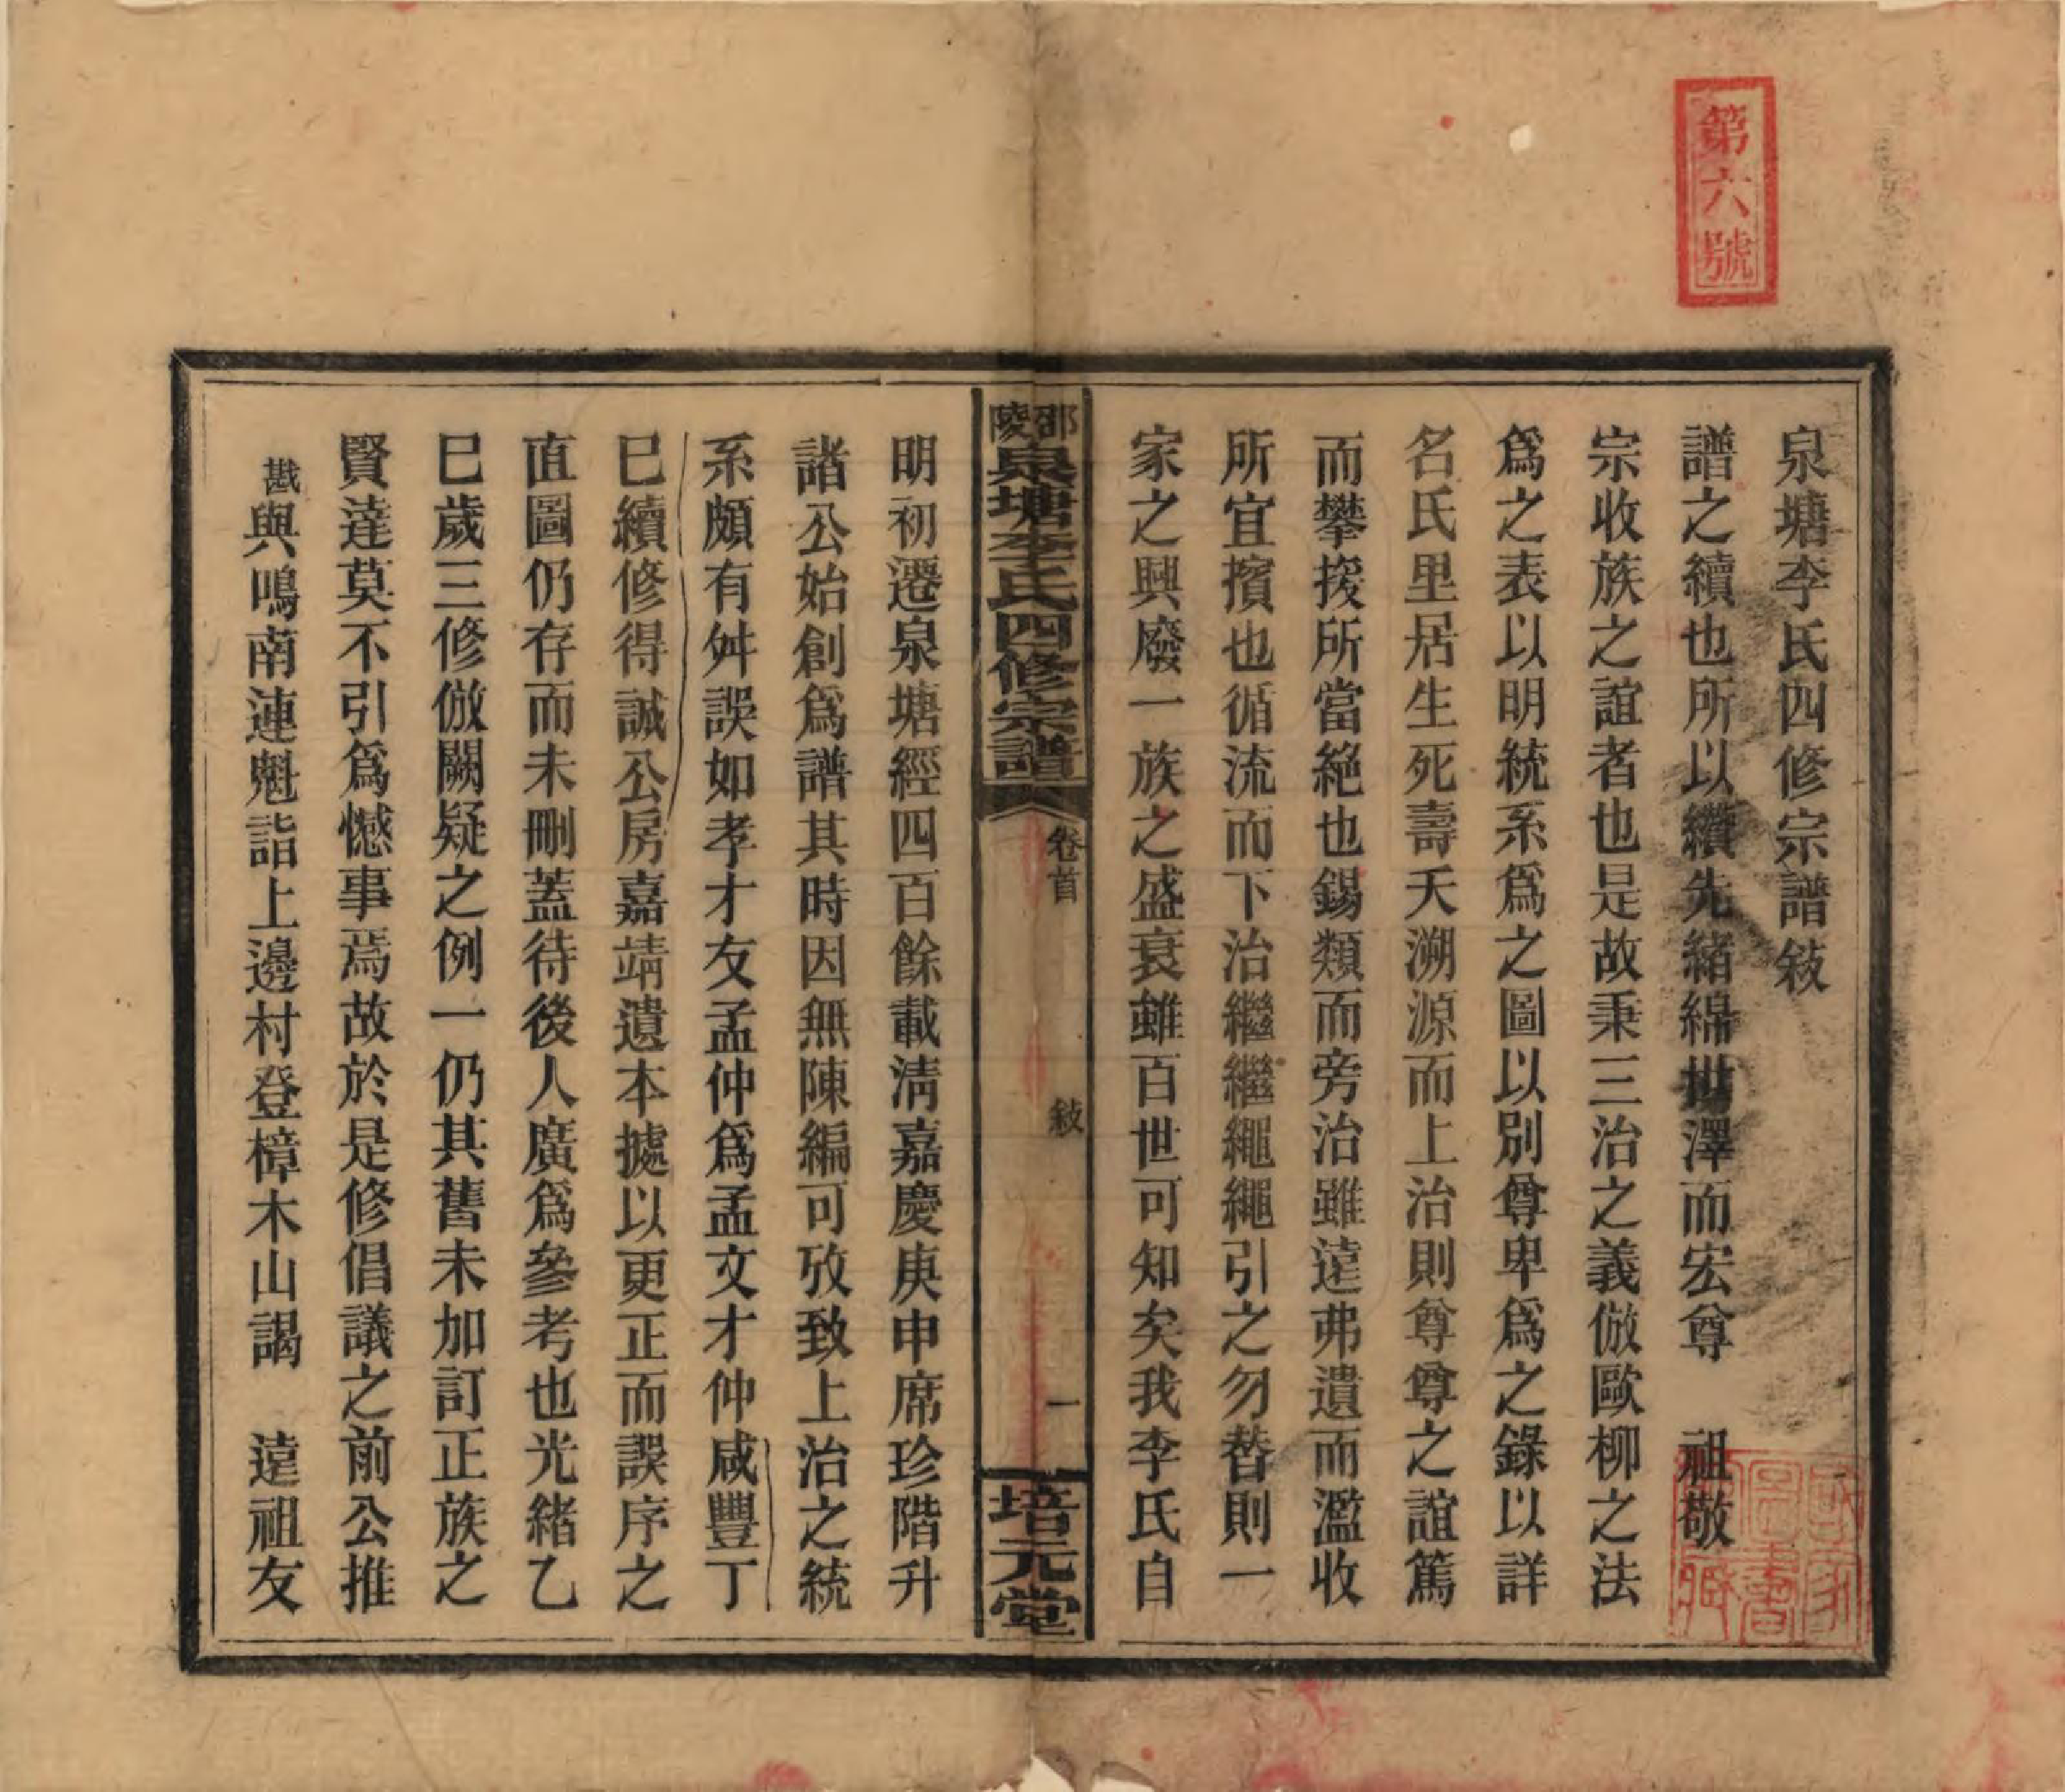 第六號
泉塘李氏四修宗譜敍
譜之續也所以纘先緒綿世澤而宏尊　祖敬
宗收族之誼者也是故秉三治之義倣歐柳之法
爲之表以明統系爲之圖以別尊卑爲之錄以詳
名氏里居生死壽夭溯源而上治則尊尊之誼篤
而攀援所當絕也錫類而旁治雖遠弗遺而濫收
所宜擯也循流而下治繼繼繩繩引之勿替則一
家之興廢一族之盛衰雖百世可知矣我李氏自
邵陵泉塘李氏四修宗譜
卷首
敍
一
培元堂
明初遷泉塘經四百餘載淸嘉慶庚申席珍階升
諸公始創爲譜其時因無陳編可攷致上治之統
系頗有舛誤如孝才友孟仲爲孟文才仲咸豐丁
巳續修得誠公房嘉靖遺本據以更正而誤序之
直圖仍存而未刪蓋待後人廣爲參考也光緒乙
巳歲三修倣闕疑之例一仍其舊未加訂正族之
賢達莫不引爲憾事焉故於是修倡議之前公推
戡與鳴南連魁詣上邊村登樟木山謁　遠祖友